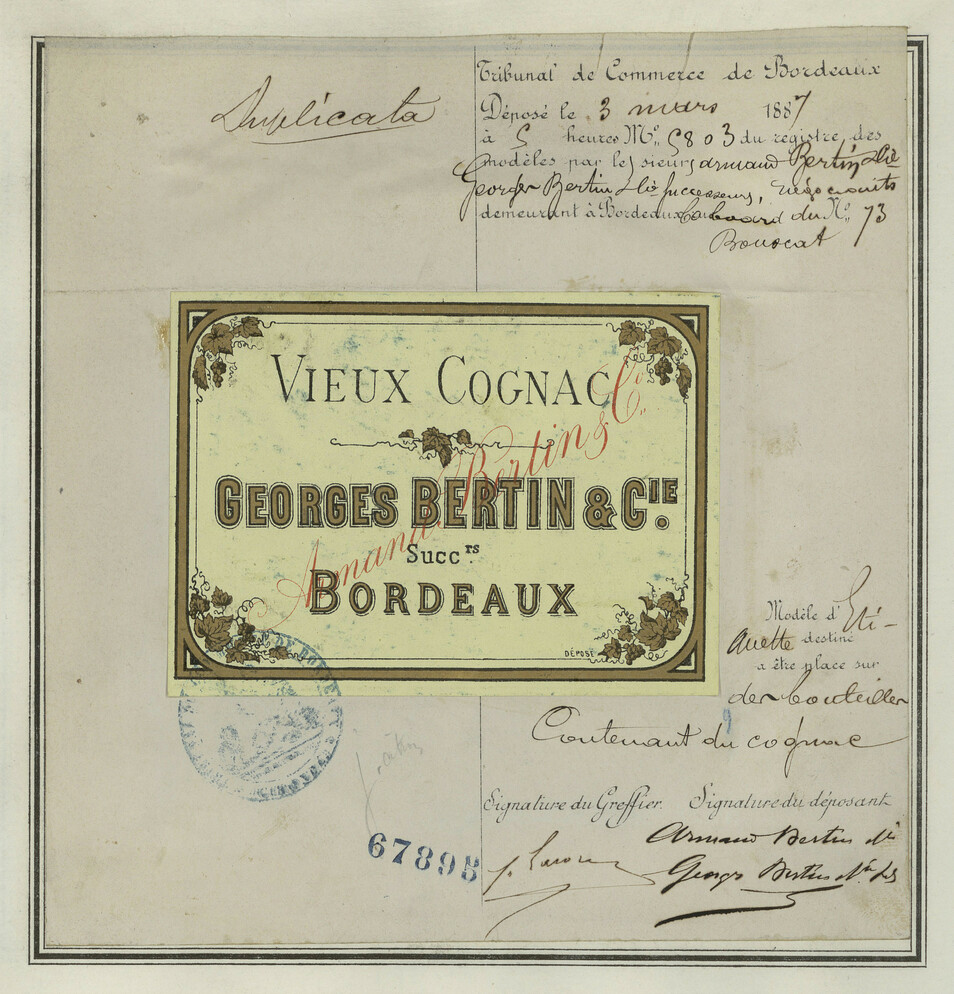 Duplicata
Tribunal de Commerce de Bordeaux
Déposé le 3 mars 1887
à 5 heures No. 5803 du registre des
modèles par les sieurs Armand Bertin & Cie
Georges Bertin & Cie Successeurs, négociants
demeurant à Bordeaux Boulevard du No. 73
Bouscat
VIEUX COGNAC
Armand Bertin & Co.
GEORGES BERTIN & CIE.
Succrs.
BORDEAUX
DÉPOSÉ
Modèle d'Eti-
quette destiné
a être place sur
des bouteilles
Contenant du cognac
Signature du Greffier. Signature du déposant
Armand Bertin &
Georges Bertin &
67895